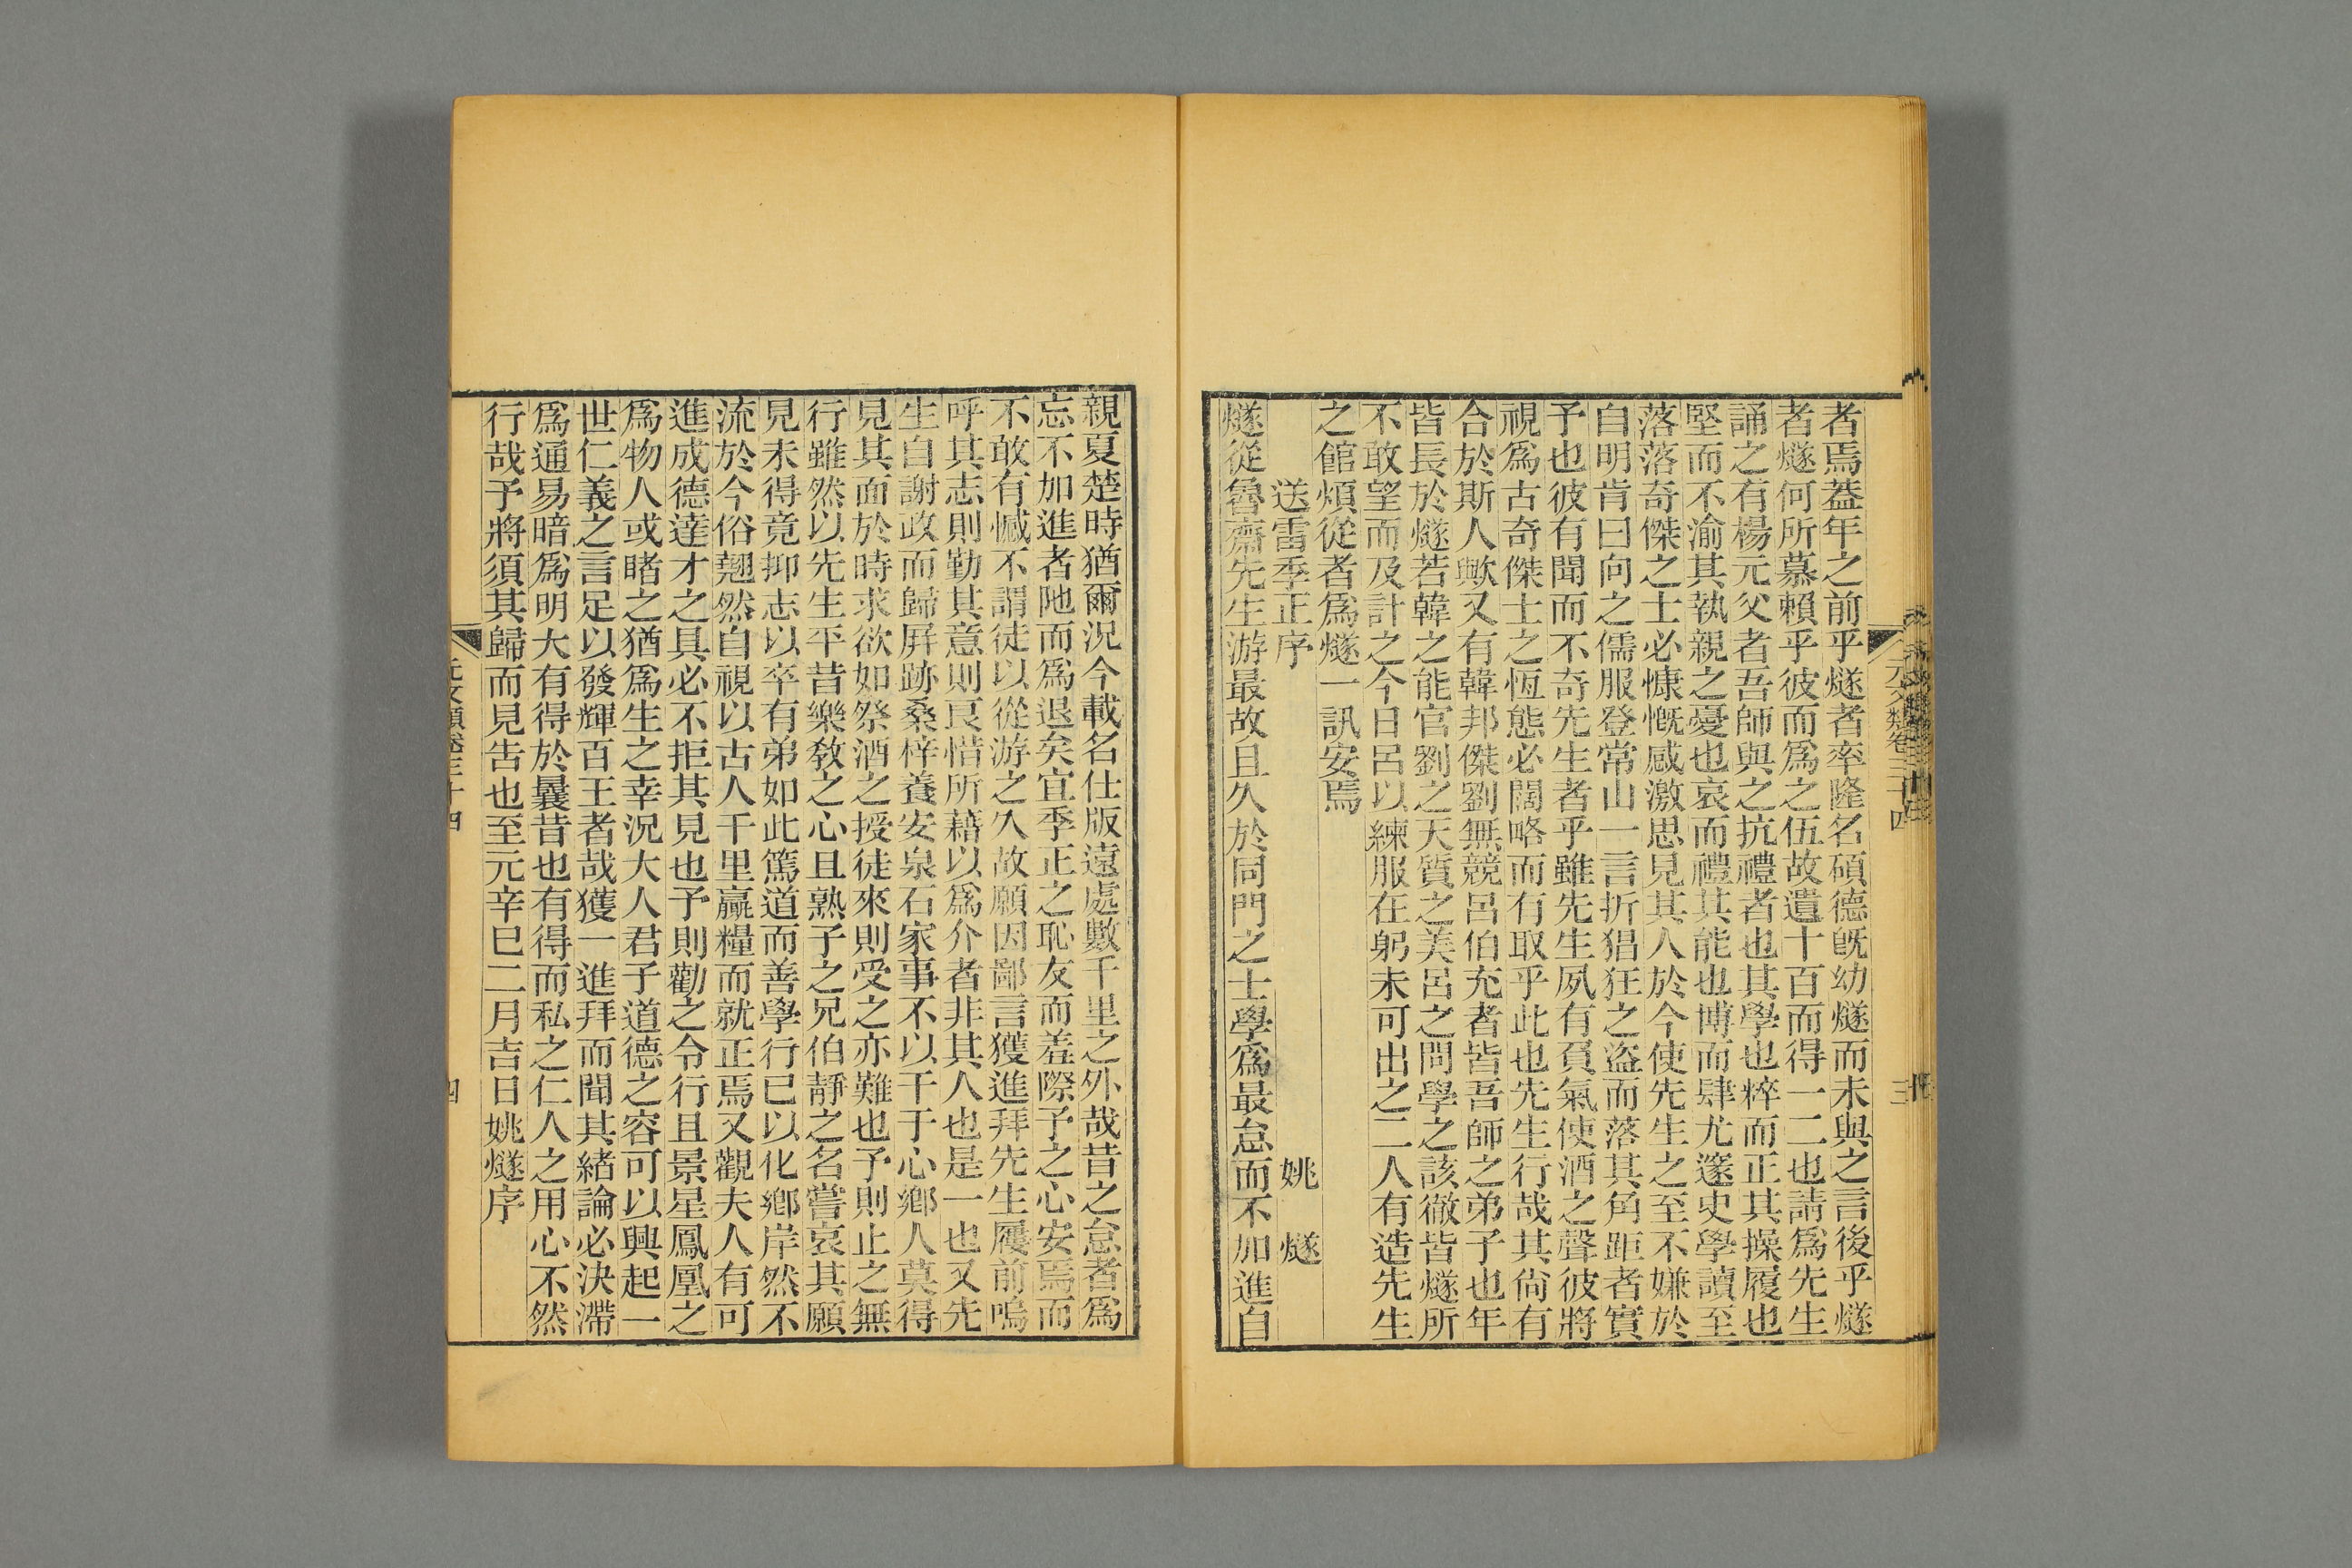 者焉葢年之前乎燧者率隆名碩德旣幼燧而未與之言後乎燧
者燧何所慕賴乎彼而爲之伍故遺十百而得一二也請爲先生
誦之有楊元父者吾師與之抗禮者也其學也粹而正其操履也
堅而不渝其執親之憂也哀而禮其能也博而肆尤邃史學讀至
落落奇傑之士必慷慨感激思見其人於今使先生之至不嫌於
自明肯曰向之儒服登常山一言折猖狂之盜而落其角距者實
予也彼有聞而不奇先生者乎雖先生夙有負氣使酒之聲彼將
視爲古奇傑士之恆態必闊略而有取乎此也先生行哉其尙有
合於斯人歟又有韓邦傑劉無競呂伯充者皆吾師之弟子也年
皆長於燧若韓之能官劉之天質之美呂之問學之該徹皆燧所
不敢望而及計之今日呂以練服在躬未可出之二人有造先生
之館煩從者爲燧一訊安焉
送雷季正序 姚燧
燧從魯齋先生游最故且久於同門之士學爲最怠而不加進自
親夏楚時猶爾況今載名仕版遠處數千里之外哉昔之怠者爲
忘不加進者阤而爲退矣宜季正之恥友而羞際予之心安焉而
不敢有憾不謂徒以從游之久故願因鄙言獲進拜先生屨前嗚
呼其志則勤其意則艮惜所藉以爲介者非其人也是一也又先
生自謝政而歸屛跡桑梓養安泉石家事不以干于心鄕人莫得
見其面於時求欲如祭酒之授徒來則受之亦難也予則止之無
行雖然以先生平昔樂敎之心且熟子之兄伯靜之名嘗哀其願
見未得竟抑志以卒有弟如此篤道而善學行已以化鄕岸然不
流於今俗翹然自視以古人千里贏糧而就正焉又觀夫人有可
進成德達才之具必不拒其見也予則勸之令行且景星鳳凰之
爲物人或睹之猶爲生之幸況大人君子道德之容可以興起一
世仁義之言足以發輝百王者哉獲一進拜而聞其緖論必決滯
爲通易暗爲明大有得於曩昔也有得而私之仁人之用心不然
行哉予將須其歸而見吿也至元辛巳二月吉日姚燧序
元文類卷三十四
四